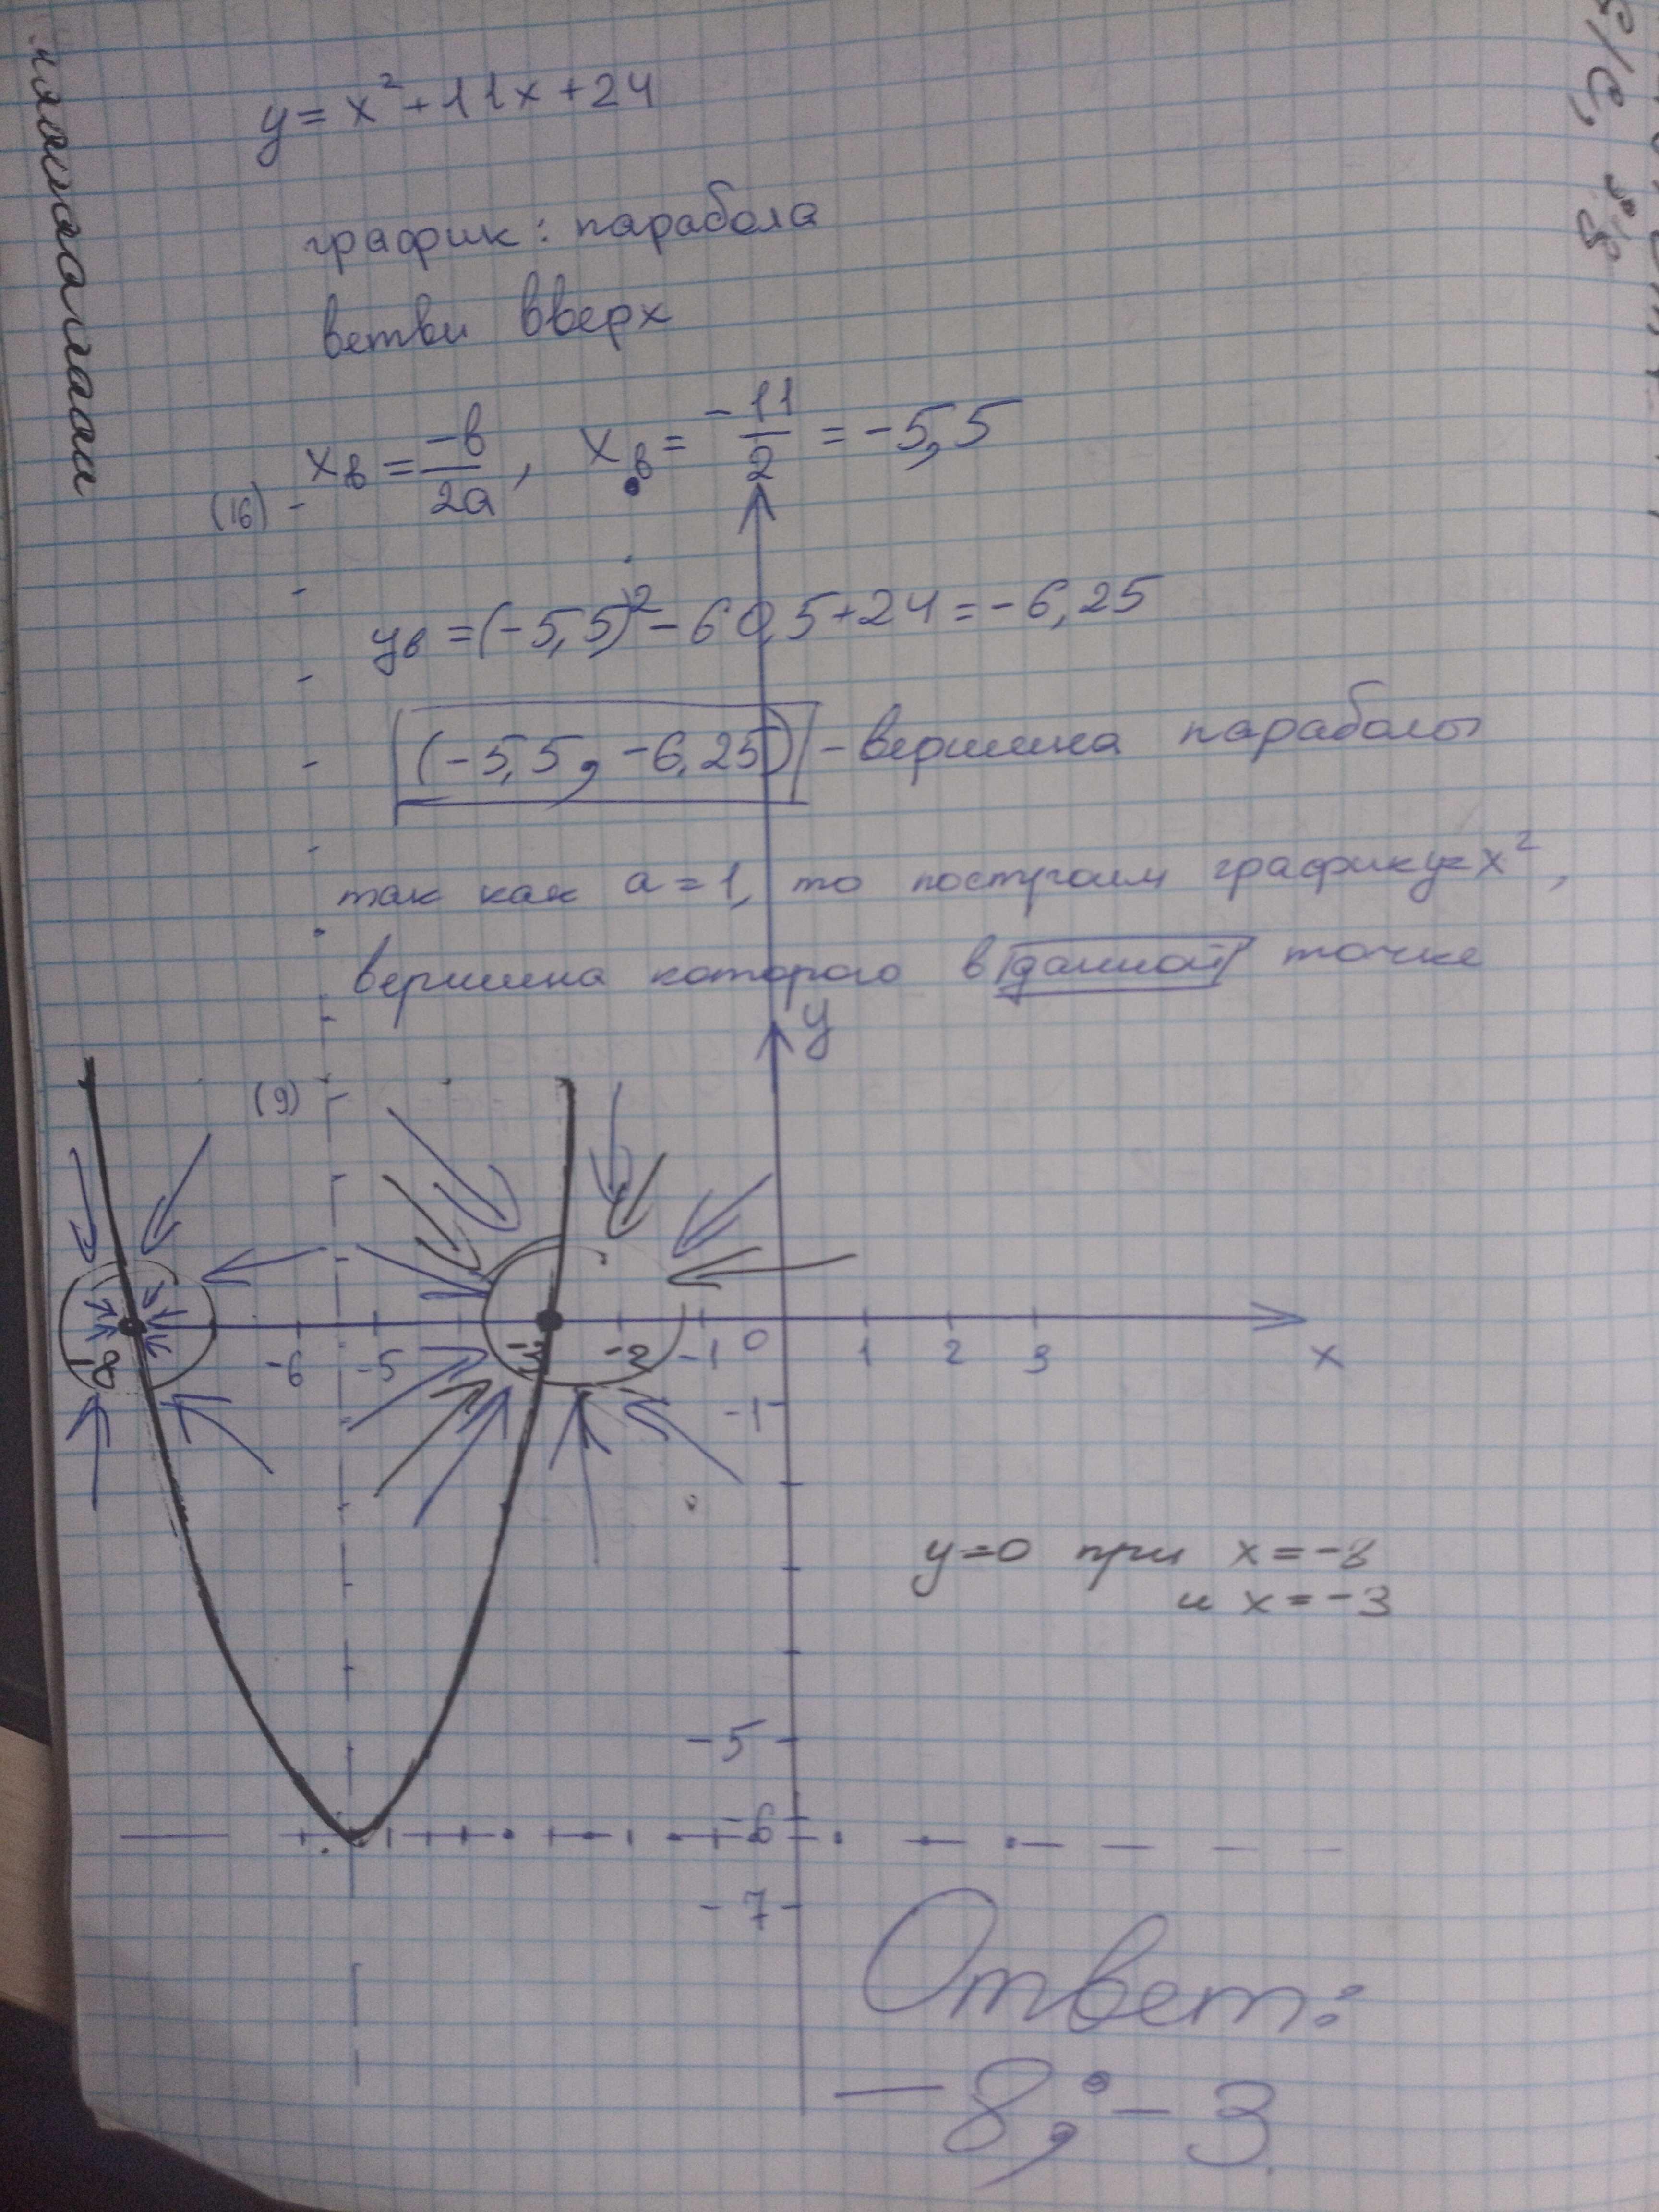 y = x² + 11x + 24
график: парабола
ветви вверх
xв = -в/2a, xв = -11/2 = -5,5
(16)
yв = (-5,5)² - 60,5 + 24 = -6,25
(-5,5; -6,25) - вершина параболы
так как a = 1, то построим график y = x²,
вершина которого в данной точке
y
(9)
-8 -6 -5 -3 -2 -1 0 1 2 3 x
-1
y=0 при x = -8
и x = -3
-5
-6
-7
Ответ:
-8; -3